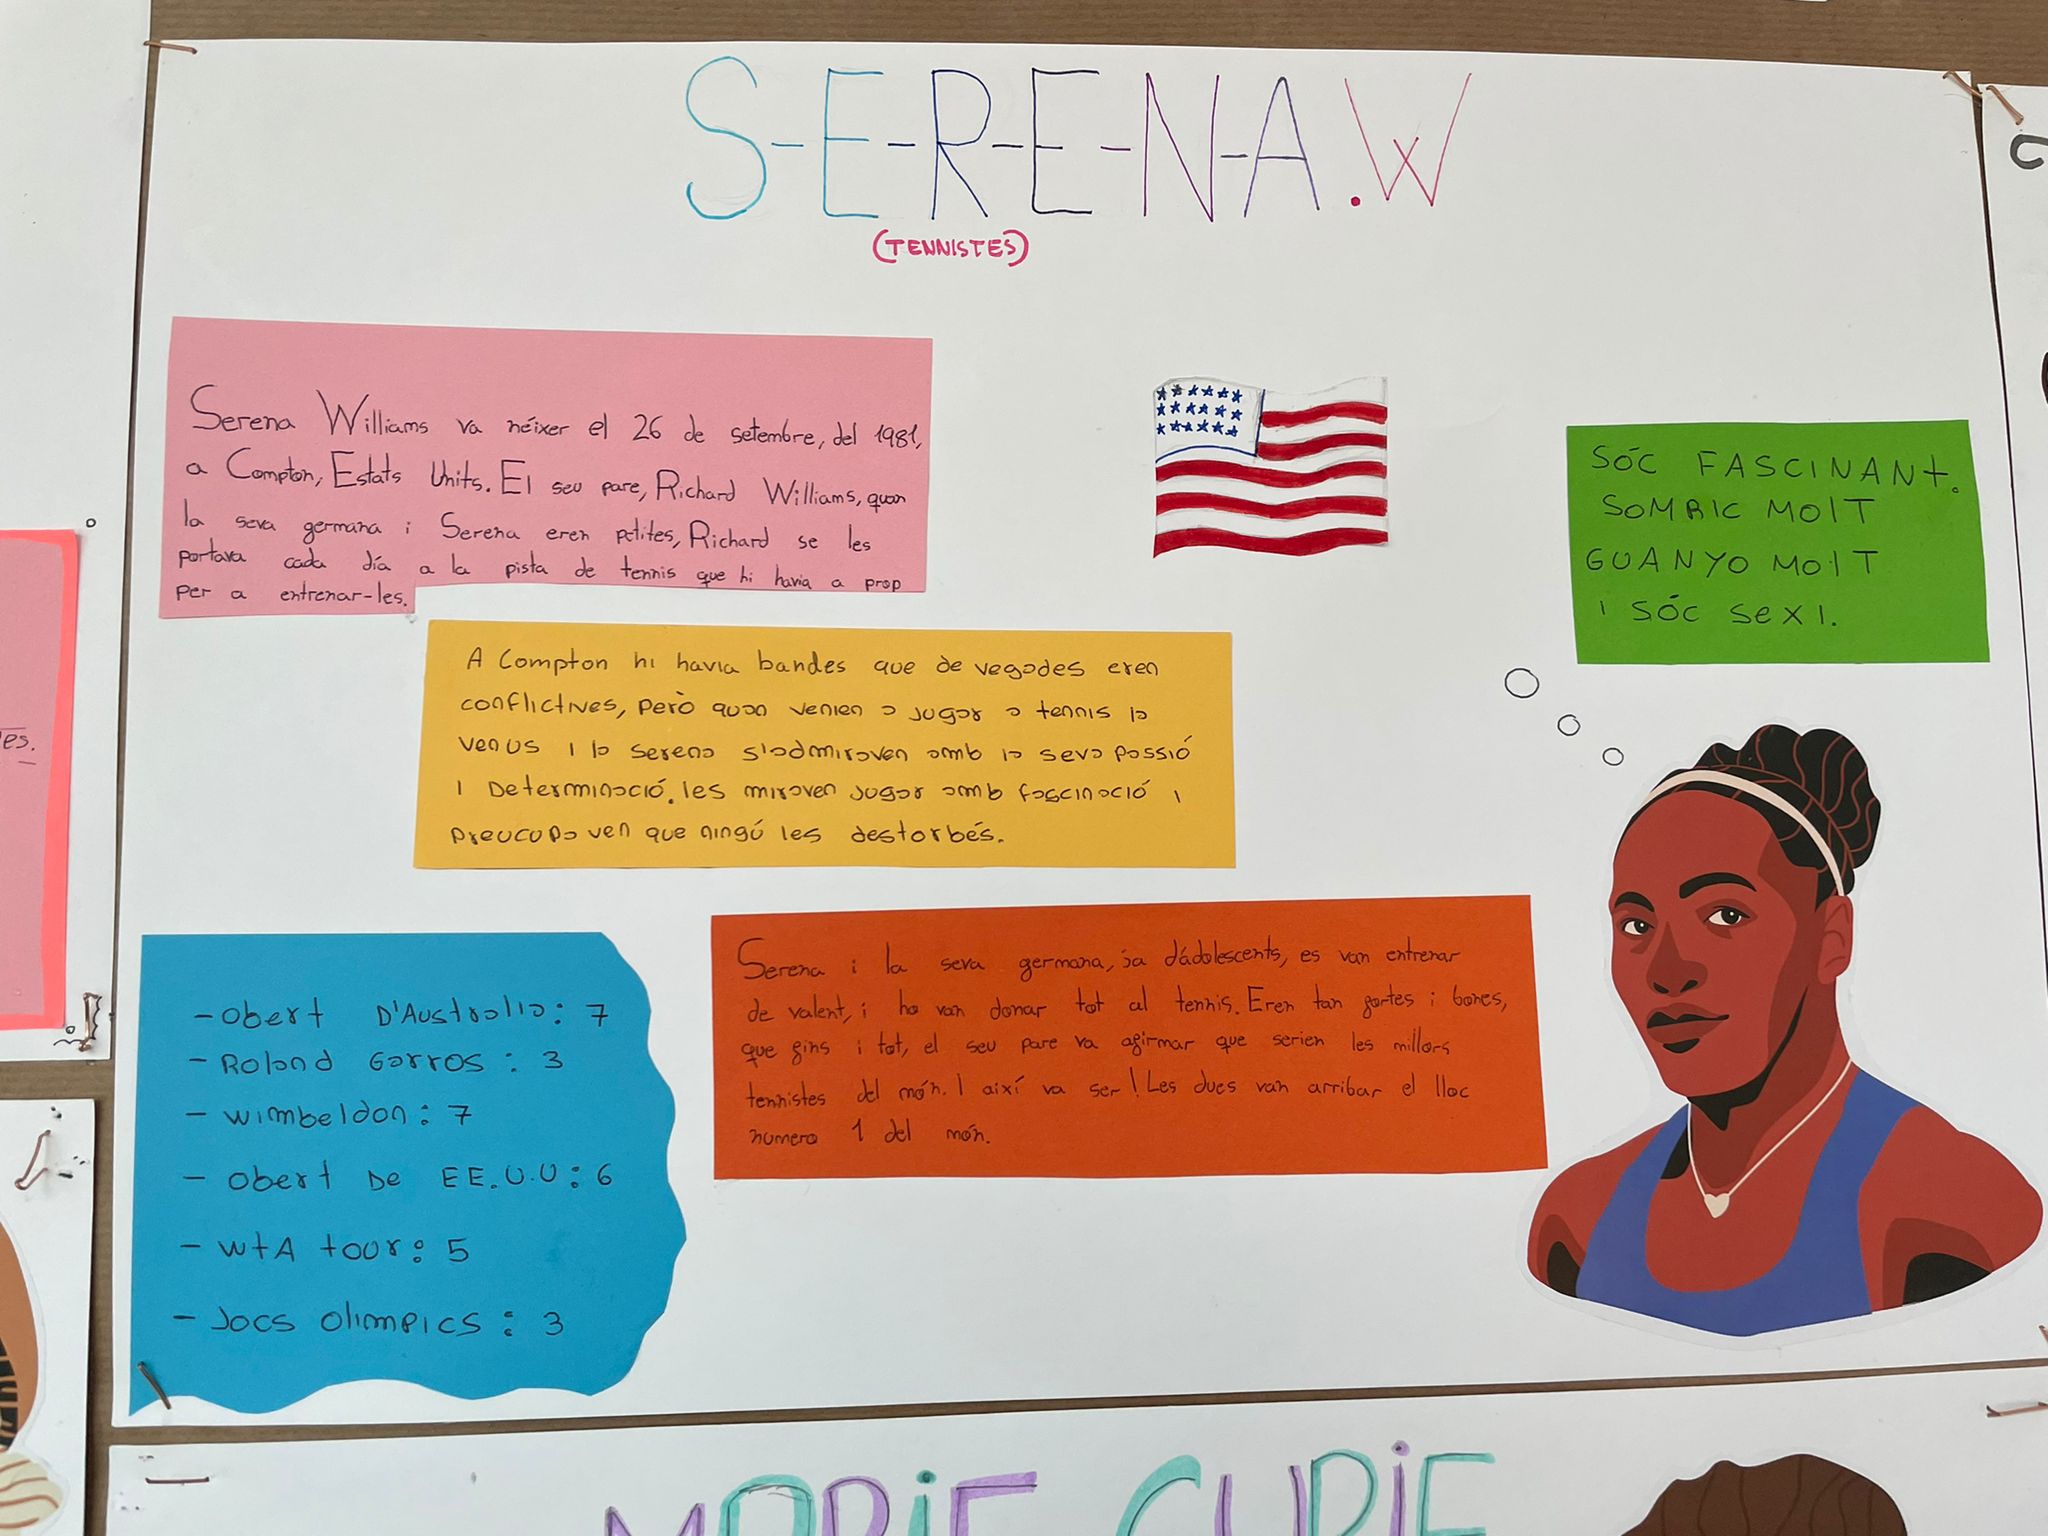 S-E-R-E-N-A.W
(TENNISTES)
Serena Williams va néixer el 26 de setembre, del 1981,
a Compton, Estats Units. El seu pare, Richard Williams, quan
la seva germana i Serena eren petites, Richard se les
portava cada día a la pista de tennis que hi havia a prop
per a entrenar-les.
SÓC FASCINANT.
SOMRIC MOLT
GUANYO MOLT
I SÓC SEXI.
A Compton hi havia bandes que de vegades eren
conflictives, però quan venien a jugar a tennis la
venus i la serena s'admiraven amb la seva passió
i Determinació. les miraven jugar amb fascinació i
preocupaven que ningú les destorbés.
Serena i la seva germana, ja d'adolescents, es van entrenar
de valent, i ho van donar tot al tennis. Eren tan fortes i bones,
que fins i tot, el seu pare va afirmar que serien les millors
tennistes del món. I així va ser! Les dues van arribar el lloc
numero 1 del món.
- Obert D'Australia: 7
- Roland Garros: 3
- Wimbeldon: 7
- Obert De EE.U.U: 6
- WtA tour: 5
- Jocs olimpics: 3
es.
MARiE CURiE